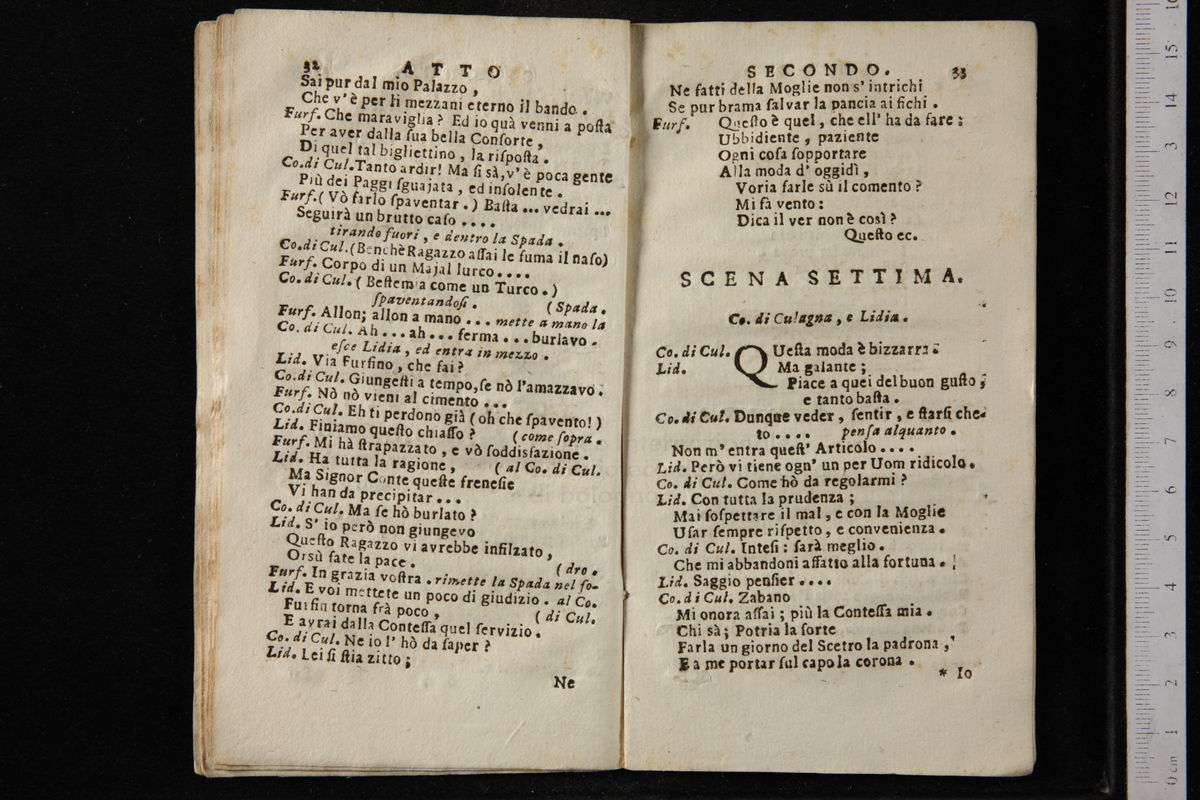 32 ATTO
Sai pur dal mio Palazzo,
Che v'è per li mezzani eterno il bando.
Furf. Che maraviglia? Ed io quà venni a posta
Per aver dalla sua bella Consorte,
Di quel tal bigliettino, la risposta.
Co. di Cul. Tanto ardir! Ma si sà, v'è poca gente
Più dei Paggi sguajata, ed insolente.
Furf. (Vò farlo spaventar.) Basta ... vedrai ...
Seguirà un brutto caso ....
tirando fuori, e dentro la Spada.
Co. di Cul. (Benchè Ragazzo assai le fuma il naso)
Furf. Corpo di un Majal lurco ....
Co. di Cul. (Bestemia come un Turco.)
spaventandosi. (Spada.
Furf. Allon; allon a mano ... mette a mano la
Co. di Cul. Ah ... ah ... ferma ... burlavo.
esce Lidia, ed entra in mezzo.
Lid. Via Furfino, che fai?
Co. di Cul. Giungesti a tempo, se nò l'amazzavo.
Furf. Nò nò vieni al cimento ...
Co. di Cul. Eh ti perdono già (oh che spavento!)
Lid. Finiamo questo chiasso? (come sopra.
Furf. Mi hà strapazzato, e vò soddisfazione.
Lid. Ha tutta la ragione, (al Co. di Cul.
Ma Signor Conte queste frenesie
Vi han da precipitar ...
Co. di Cul. Ma se hò burlato?
Lid. S' io però non giungevo
Questo Ragazzo vi avrebbe infilzato,
Orsù fate la pace. (dro.
Furf. In grazia vostra. rimette la Spada nel fo-
Lid. E voi mettete un poco di giudizio. al Co.
Furfin torna frà poco, (di Cul.
E avrai dalla Contessa quel servizio.
Co. di Cul. Ne io l' hò da saper?
Lid. Lei si stia zitto;
Ne
SECONDO. 33
Ne fatti della Moglie non s' intrichi
Se pur brama salvar la pancia ai fichi.
Furf. Questo è quel, che ell' ha da fare:
Ubbidiente, paziente
Ogni cosa sopportare
Alla moda d' oggidì,
Voria farle sù il comento?
Mi fà vento:
Dica il ver non è così?
Questo ec.
SCENA SETTIMA.
Co. di Culagna, e Lidia.
Co. di Cul. Questa moda è bizzarra.
Lid. Ma galante;
Piace a quei del buon gusto;
e tanto basta.
Co. di Cul. Dunque veder, sentir, e starsi che-
to .... pensa alquanto.
Non m' entra quest' Articolo ....
Lid. Però vi tiene ogn' un per Uom ridicolo.
Co. di Cul. Come hò da regolarmi?
Lid. Con tutta la prudenza;
Mai sospettare il mal, e con la Moglie
Usar sempre rispetto, e convenienza.
Co. di Cul. Intesi: sarà meglio.
Che mi abbandoni affatto alla fortuna.
Lid. Saggio pensier ....
Co. di Cul. Zabano
Mi onora assai; più la Contessa mia.
Chi sà; Potria la sorte
Farla un giorno del Scetro la padrona,
E a me portar sul capo la corona.
* Io
0 cm 1 2 3 4 5 6 7 8 9 10 11 12 13 14 15